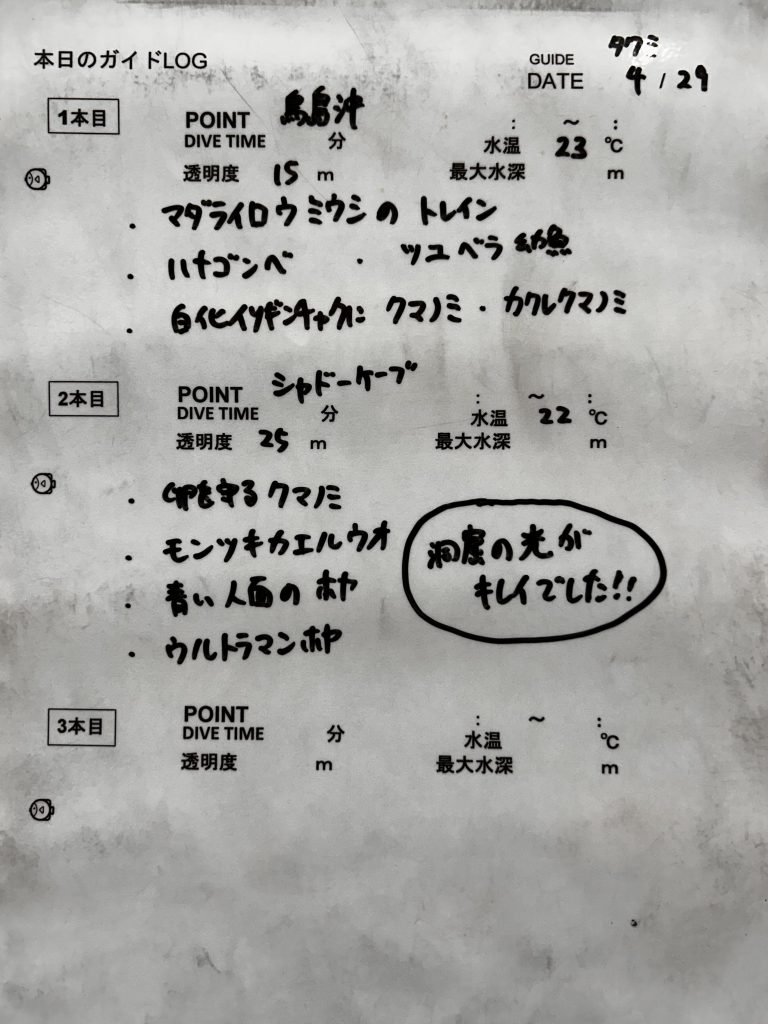 本日のガイドLOG
GUIDE タクミ
DATE 4 / 29
1本目 POINT 鳥島沖
DIVE TIME 分 : ～ :
水温 23 ℃
透明度 15 m 最大水深 m
・マダライロウミウシの トレイン
・ハナゴンベ ・ツユベラ 幼魚
・白化イソギンチャクに クマノミ・カクレクマノミ
2本目 POINT シャドーケーブ
DIVE TIME 分 : ～ :
水温 22 ℃
透明度 25 m 最大水深 m
・卵を守る クマノミ
・モンツキカエルウオ
・青い人面の ホヤ
・ウルトラマンホヤ
洞窟の光が
キレイでした!!
3本目 POINT
DIVE TIME 分 : ～ :
水温 ℃
透明度 m 最大水深 m